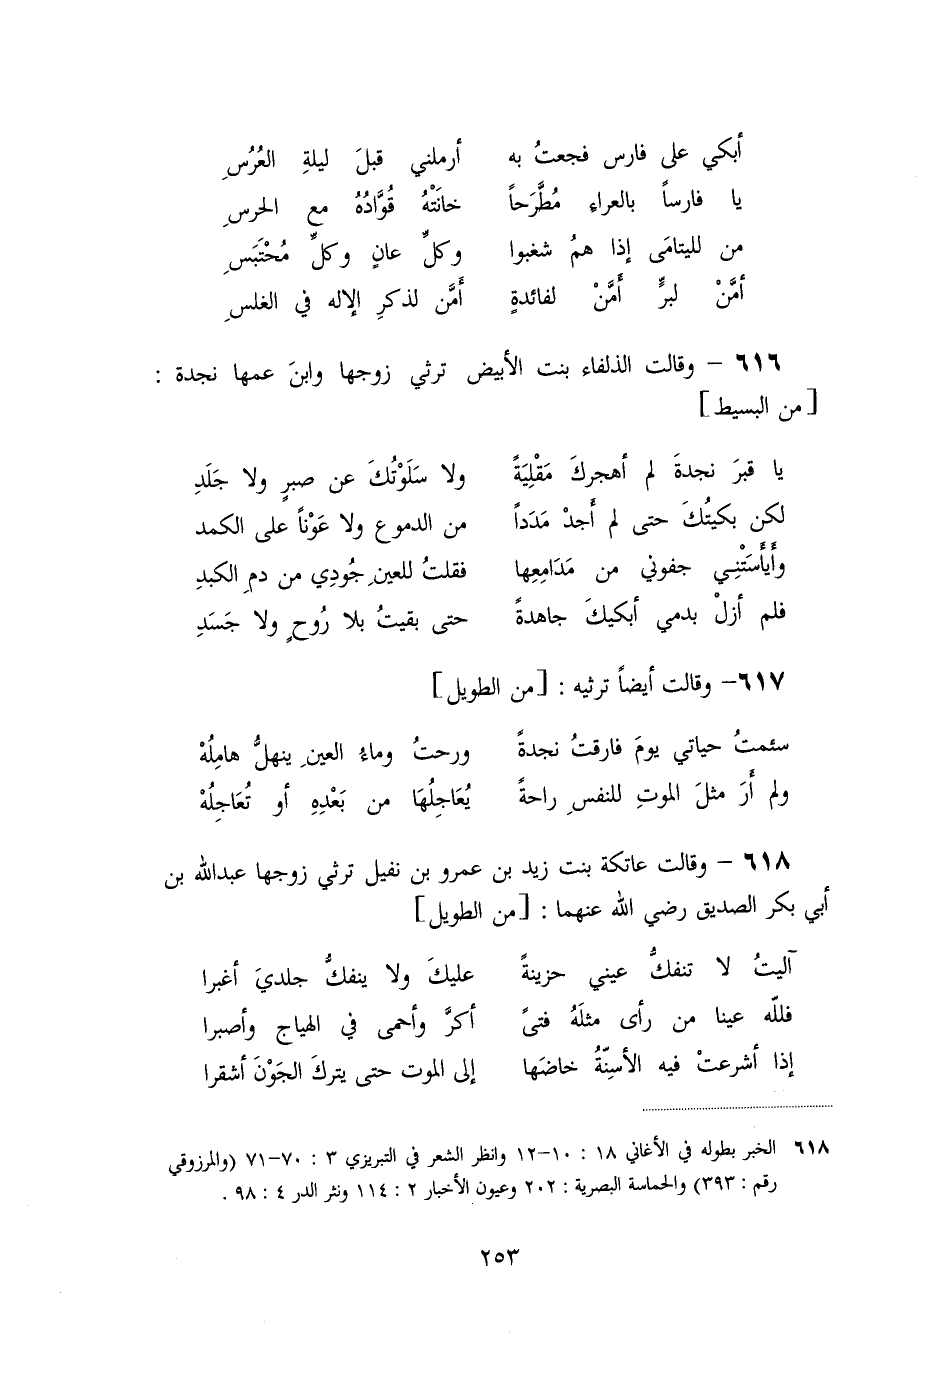 أبكي على فارس فجعتُ به أرملني قبلَ ليلةِ العُرُسِ
يا فارساً بالعراءِ مُطَّرَحاً خانَتْهُ قُوَّادُهُ مع الحرسِ
من لليتامَى إذا همُ شغبوا وكلِّ عانٍ وكلِّ مُحْتَبَسِ
أمَّنْ لبرٍّ أَمَّنْ لفائدةٍ أَمَّن لذكرِ الإلاله في الغلسِ
٦١٦ – وقالت الذلفاء بنت الأبيض ترثي زوجها وابنَ عمها نجدة :
[من البسيط]
يا قبرَ نجدةَ لم أهجركَ مَقْلِيَةً ولا سَلَوْتُكَ عن صبرٍ ولا جَلَدِ
لكن بكيتُكَ حتى لم أَجدْ مَدَداً من الدموع ولا عَوْناً على الكمد
وأَيأَسَتْنِي جفوني من مَدَامِعِها فقلتُ للعينِ جُودِي من دمِ الكبدِ
فلم أزلْ بدمي أبكيكَ جاهدةً حتى بقيتُ بلا رُوحٍ ولا جَسَدِ
٦١٧– وقالت أيضاً ترثيه : [من الطويل]
سئمتُ حياتي يومَ فارقتُ نجدةً ورحتُ وماءُ العينِ ينهلُّ هامِلُهْ
ولم أَرَ مثلَ الموتِ للنفسِ راحةً يُعَاجِلُهَا من بَعْدِهِ أو تُعَاجِلُهْ
٦١٨ – وقالت عاتكة بنت زيد بن عمرو بن نفيل ترثي زوجها عبدالله بن
أبي بكر الصديق رضي الله عنهما : [من الطويل]
آليتُ لا تنفكُّ عيني حزينةً عليكَ ولا ينفكُّ جلديَ أغبرا
فللّه عينا من رأى مثلَهُ فتىً أكرَّ وأحمى في الهياج وأصبرا
إذا أشرعتْ فيه الأسِنّةُ خاضَها إلى الموت حتى يتركَ الجَوْنَ أشقرا
٦١٨ الخبر بطوله في الأغاني ١٨ : ١٠–١٢ وانظر الشعر في التبريزي ٣ : ٧٠–٧١ (والمرزوقي
رقم : ٣٩٣) والحماسة البصرية : ٢٠٢ وعيون الأخبار ٢ : ١١٤ ونثر الدر ٤ : ٩٨ .
٢٥٣